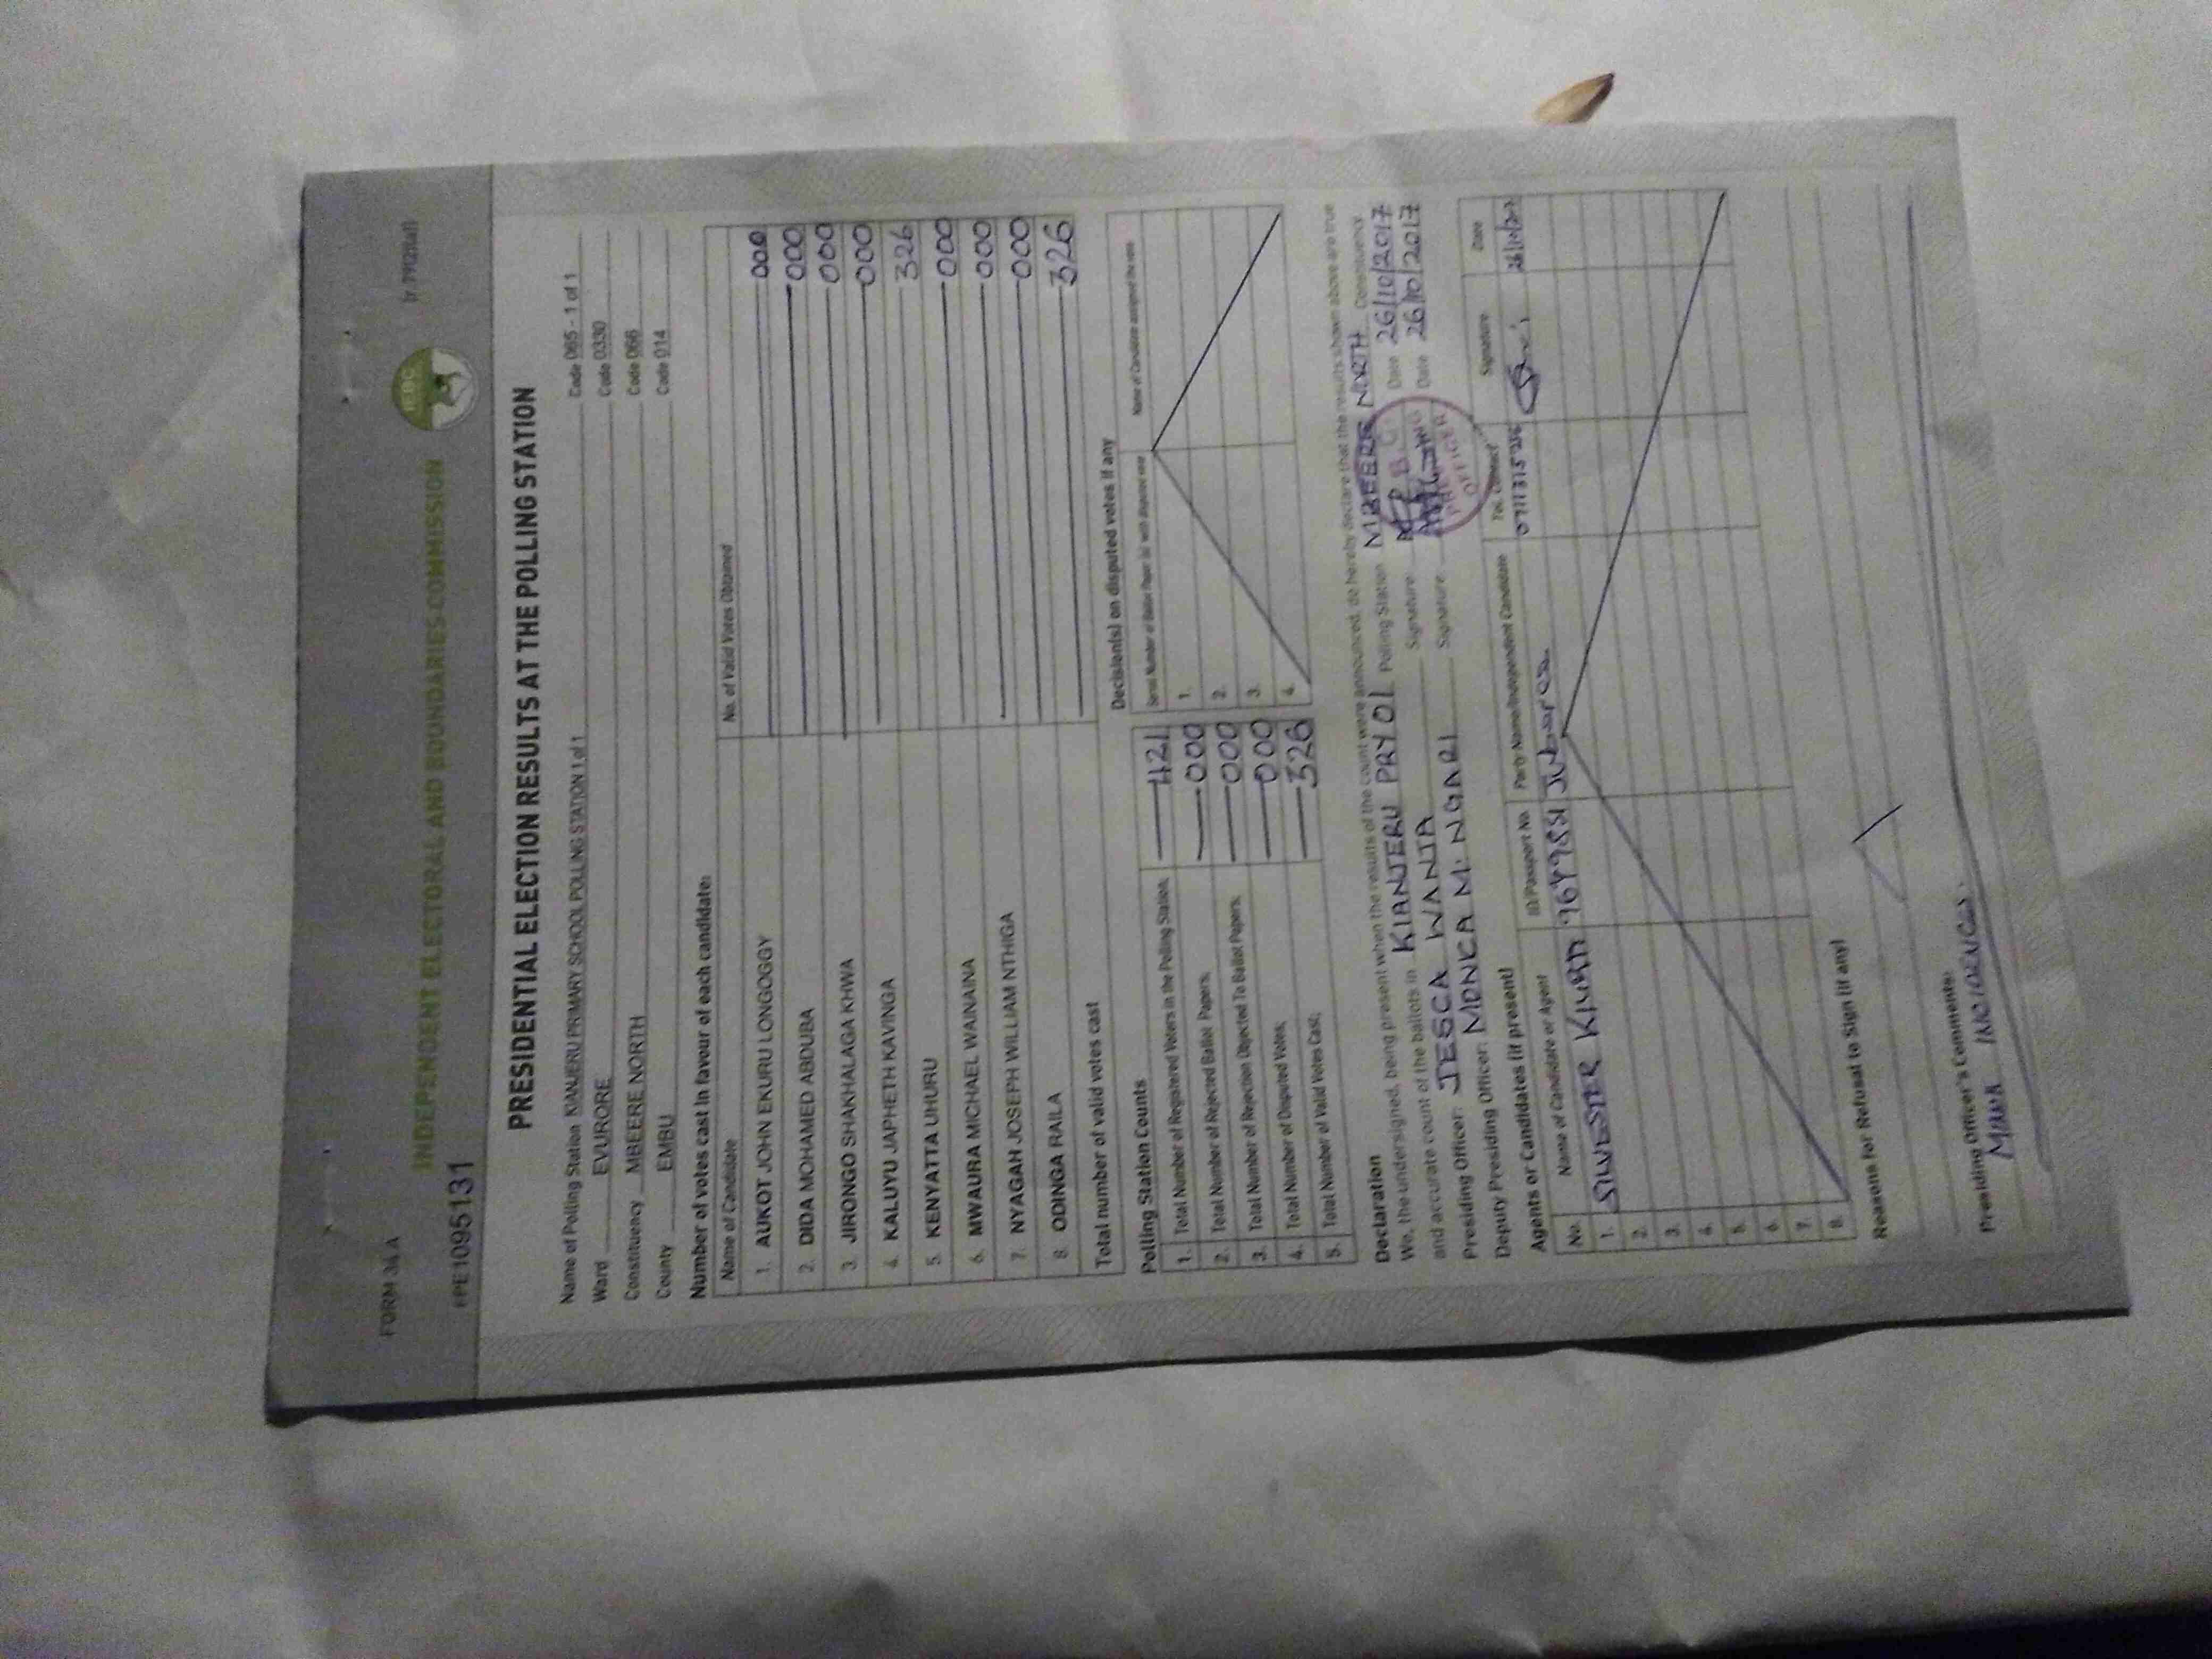 FORM 34A
INDEPENDENT ELECTORAL AND BOUNDARIES COMMISSION
IEBC
PPE1095131
PRESIDENTIAL ELECTION RESULTS AT THE POLLING STATION
Name of Polling Station KIANJERU PRIMARY SCHOOL POLLING STATION 1 of 1 Code 065 - 1 of 1
Ward EVURORE Code 0330
Constituency MBEERE NORTH Code 066
County EMBU Code 014
Number of votes cast in favour of each candidate:
Name of Candidate No. of Valid Votes Obtained
1. AUKOT JOHN EKURU LONGOGGY 000
2. DIDA MOHAMED ABDUBA 000
3. JIRONGO SHAKHALAGA KHWA 000
4. KALUYU JAPHETH KAVINGA 000
5. KENYATTA UHURU 326
6. MWAURA MICHAEL WAINAINA 000
7. NYAGAH JOSEPH WILLIAM NTHIGA 000
8. ODINGA RAILA 000
Total number of valid votes cast 326
Polling Station Counts
1. Total Number of Registered Voters in the Polling Station; 421
2. Total Number of Rejected Ballot Papers; 000
3. Total Number of Rejection Objected To Ballot Papers; 000
4. Total Number of Disputed Votes; 000
5. Total Number of Valid Votes Cast; 326
Decision(s) on disputed votes if any
Serial Number of Ballot Paper (s) with disputed vote Name of Candidate assigned the vote
1.
2.
3.
4.
Declaration
We, the undersigned, being present when the results of the count were announced, do hereby declare that the results shown above are true
and accurate count of the ballots in KIANJERU PRY 01 Polling Station MBEERE NORTH Constituency
Presiding Officer: JESCA WANJA Signature: Date 26/10/2017
Deputy Presiding Officer: MONICA M. NGARI Signature: Date 26/10/2017
PRESIDING OFFICER
Agents or Candidates (if present)
No. Name of Candidate or Agent ID/Passport No. Party Name/Independent Candidate Tel. Contact Signature Date
1. SILVESTER
2.
3.
4.
5.
6.
7.
8.
Reasons for Refusal to Sign (if any)
Presiding Officer's Comments:
MINOR INCIDENCES.